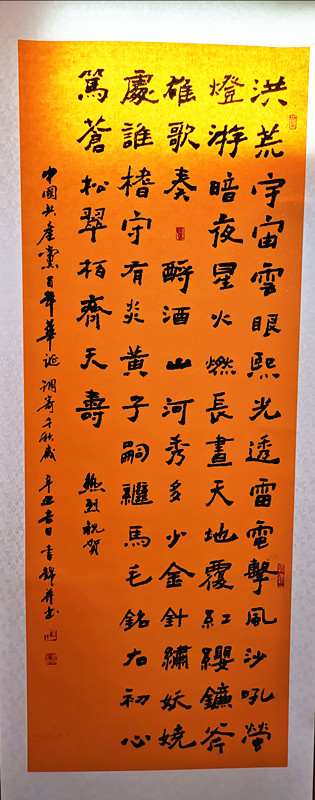 洪荒宇宙雲眼熙光透雷電擊風沙吼螢
燈游暗夜星火燃長晝天地覆紅纓鐮斧
雄歌奏 酹酒山河秀多少金針繡妖嬈
處誰楷守有炎黃子嗣繼馬毛銘右初心
篤蒼松翠柏齊天壽 熱烈祝賀
中國共產黨百年華誕 調寄千秋歲 辛丑吉日 書